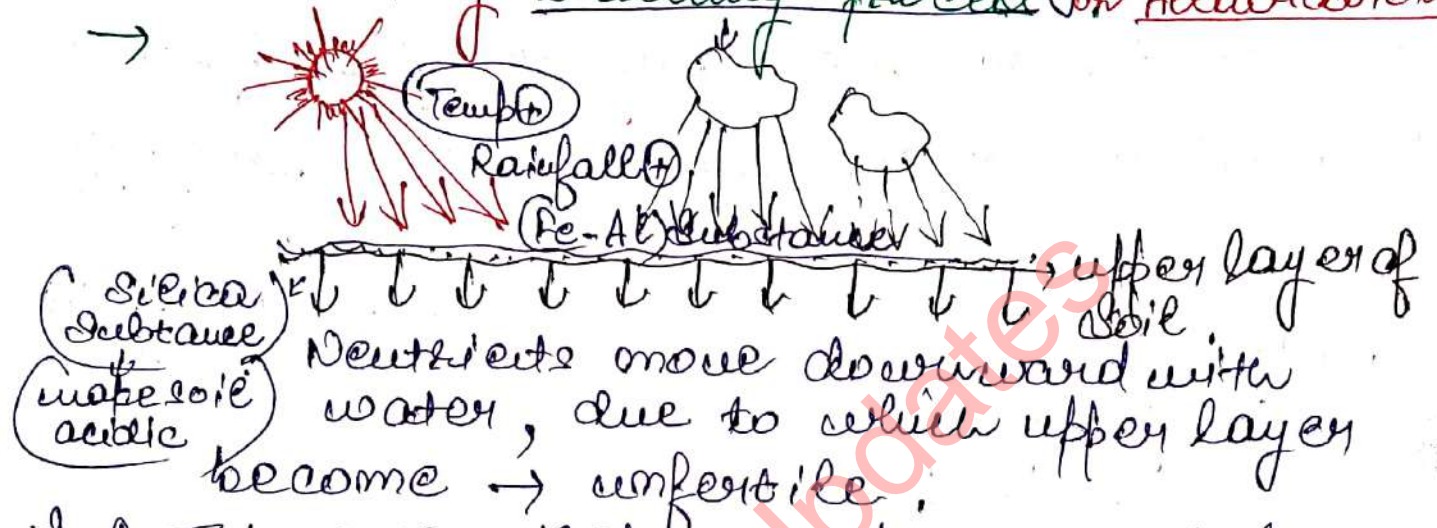 → process or
Temp ⊕
Rainfall ⊕
(Fe-Al) Substance
→ upper layer of
soil.
Silica
Substance
↓
make soil
acidic
Neutrients move downward with
water, due to which upper layer
become → unfertile.
updates